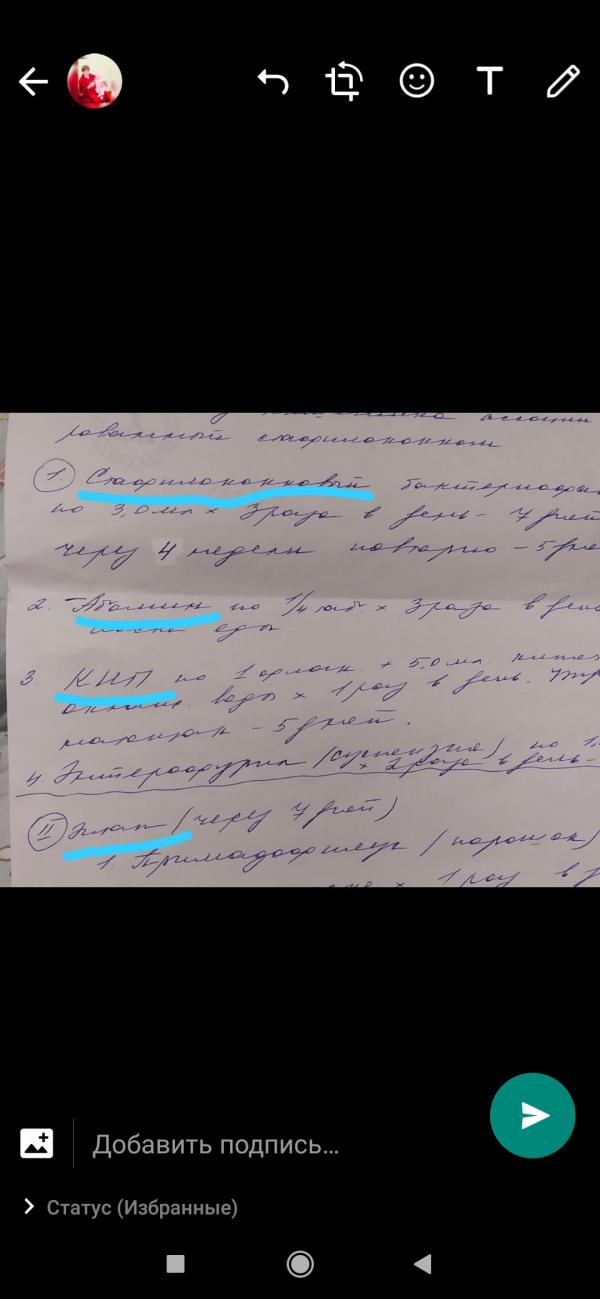 T
рованный стафилококком.
1. Стафилококковый бактериофа
по 3,0 мл × 3 раза в день - 7 дней
через 4 недели повторно - 5 дне
2. Абомин по 1/4 таб. × 3 раза в ден
после еды.
3. КИП по 1 флак. + 5,0 мл. кипя
воды × 1 раз в день.
- 5 дней.
4. Энтерофурил (суспензия) по
× 2 раза в день -
II этап (через 7 дней)
1. Примадофилус (порошок)
× 1 раз в д
Добавить подпись...
Статус (Избранные)